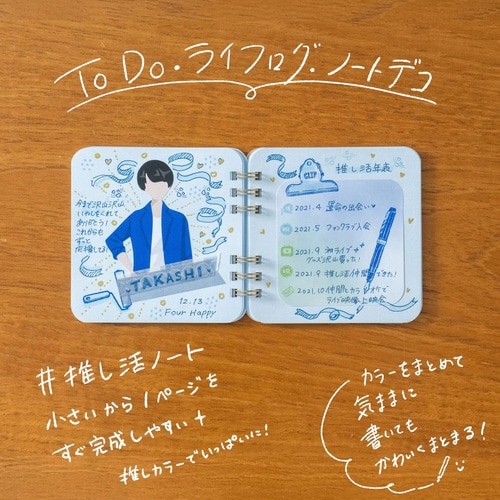 ToDo・ライフログ・ノートデコ
今まで沢山沢山
いやしをくれて
ありがとう!
これからも
ずっと
応援してる!
TAKASHI
12.13
Four Happy
CLIP
推し活年表
2021.4 運命の出会い
2021.5 ファンクラブ入会
2021.9 初ライブ
グッズ沢山買った!
2021.9 推し活仲間できた!
2021.10 仲間とカラオケで
ライブ映像上映会
#推し活ノート
小さいから1ページを
すぐ完成しやすい+
推しカラーでいっぱいに!
カラーをまとめて
気ままに
書いても
かわいくまとまる!